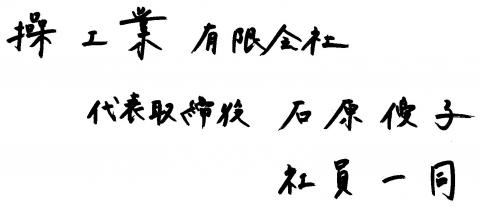 操工業 有限会社
代表取締役 石原優子
社員一同